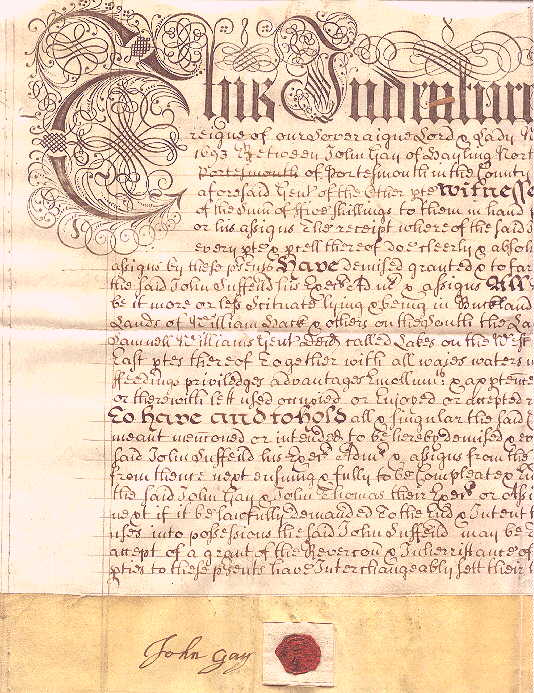 This Indenture
Reigne of our Soveraigne Lord & Lady
1693 Between John Gay of Hayling North
Portesmouth of Portesmouth in the County
aforesaid Gent of the Other pte Witnesse
of the Sum of ffive shillings to them in hand
or his assigns the receipt whereof the said
every pte & pcell thereof doe cleerly & absol
assigns by these psents Have demised granted & to far
the said John Suffeild his Execrs Admrs & assigns All
be it more or less Scituate lying & being in Buckland
Lands of William & others on the South the La
Williams Gent called Lakes on the West
East ptes thereof Together with all waies waters
ffeedings priviledges advantages Emollumts & apptence
or therewith lett used occupied or Enjoyed or accepted
To have and to hold all & singular the said
meant mencioned or intended to be hereby demised &
said John Suffeild his Execrs Admrs & assigns from the
from thence next ensuing & fully to be Compleate &
the said John Gay & John Thomas their Execrs or assi
next if it be lawfully demanded To the End & Intent t
uses into possession the said John Suffeild may be
accept of a grant of the Revercon & Inherrittance of
pties to these psents have Interchangeably sett their
John Gay